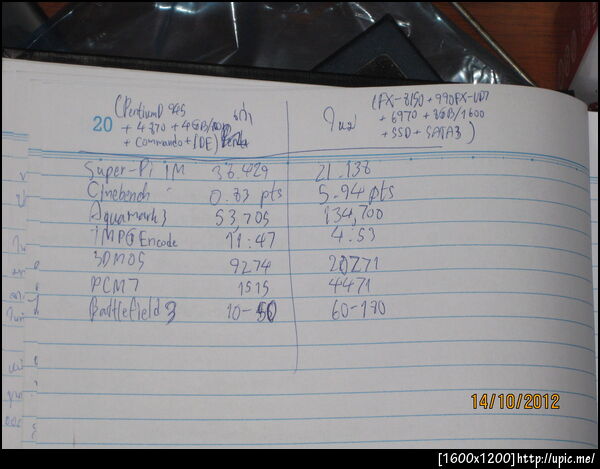 (PentiumD 945
+ 4870 + 4GB/800
+ Commando + IDE)
เก่า
ใหม่
(FX-8150 + 990FX-UD7
+ 6970 + 8GB/1600
+ SSD + SATA3)
20
Super-Pi 1M 38.429 21.138
Cinebench 0.83 pts 5.94 pts
Aquamark3 53,705 134,700
TMPGEncode 11:47 4:53
3DM05 9274 20271
PCM7 1515 4471
Battlefield 3 10-50 60-180
14/10/2012
[1600x1200]http://upic.me/